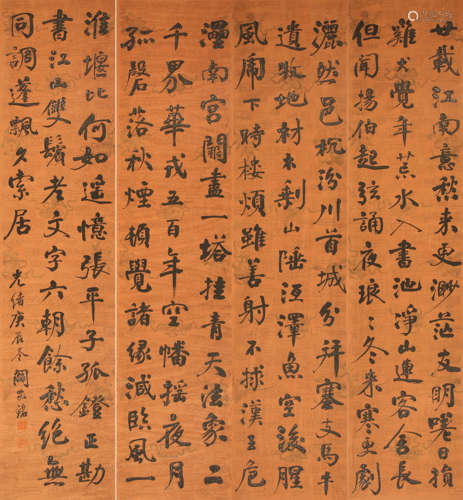 廿載江南意愁來更渺茫支明嘆日損
雞犬覺年荒水入書池淨山連客舍長
但聞揚伯起弦誦夜琅〻冬來寒更劇
灑然邑枕汾川首城分拜塞支馬牛
遺牧地材木剩山陲江澤魚空後腥
風鬧下時樓煩雖善射不救漢王危
南宮闕盡一塔挂青天法象二
千界華戎五百年空幡搖夜月
孤磬落秋煙頓覺諸緣滅臨風一
淮堰比何如遥憶張平子孤鐙正勘
書江山雙鬢老文字六朝餘愁絶無
同調蓬飄久索居
光緒庚辰冬閻敬銘